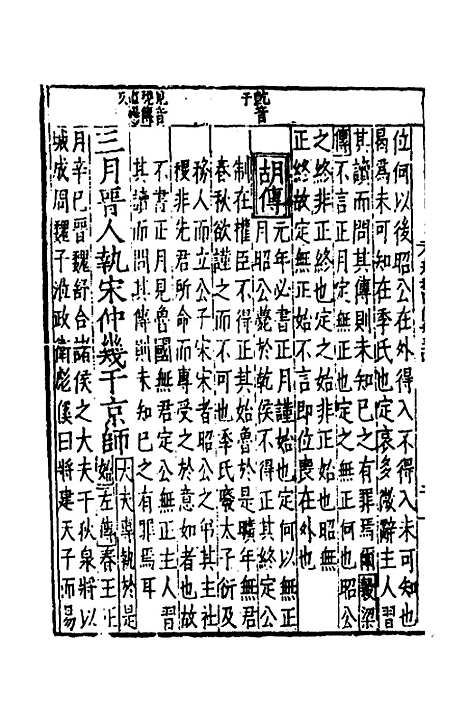 位何以後昭公在外得入不得入未可知也
曷爲未可知在季氏也定哀多微辭主人習
其讀而問其傳則未知己之有罪焉爾穀梁
傳不言正月定無正也定之無正何也昭公
之終非正終也定之始非正始也昭無
正終故定無正始不言即位喪在外也
胡傳元年必書正月謹始也定何以無正
月昭公薨於乾侯不得正其終定公
制在權臣不得正其始魯於是曠年無君
春秋欲謹之而不可也季氏廢太子衍及
務人而立公子宋宋者昭公之弟其主社
稷非先君所命而專受之於意如者也故
不書正月見魯國無君定公無正主人習
其讀而問其傳則未知己之有罪焉耳
三月晉人執宋仲幾于京師
大夫專執於是始
左傳春王正
月辛巳晉魏舒合諸侯之大夫于狄泉將以
城成周魏子涖政衛彪傒曰將建天子而易
乾音
見音